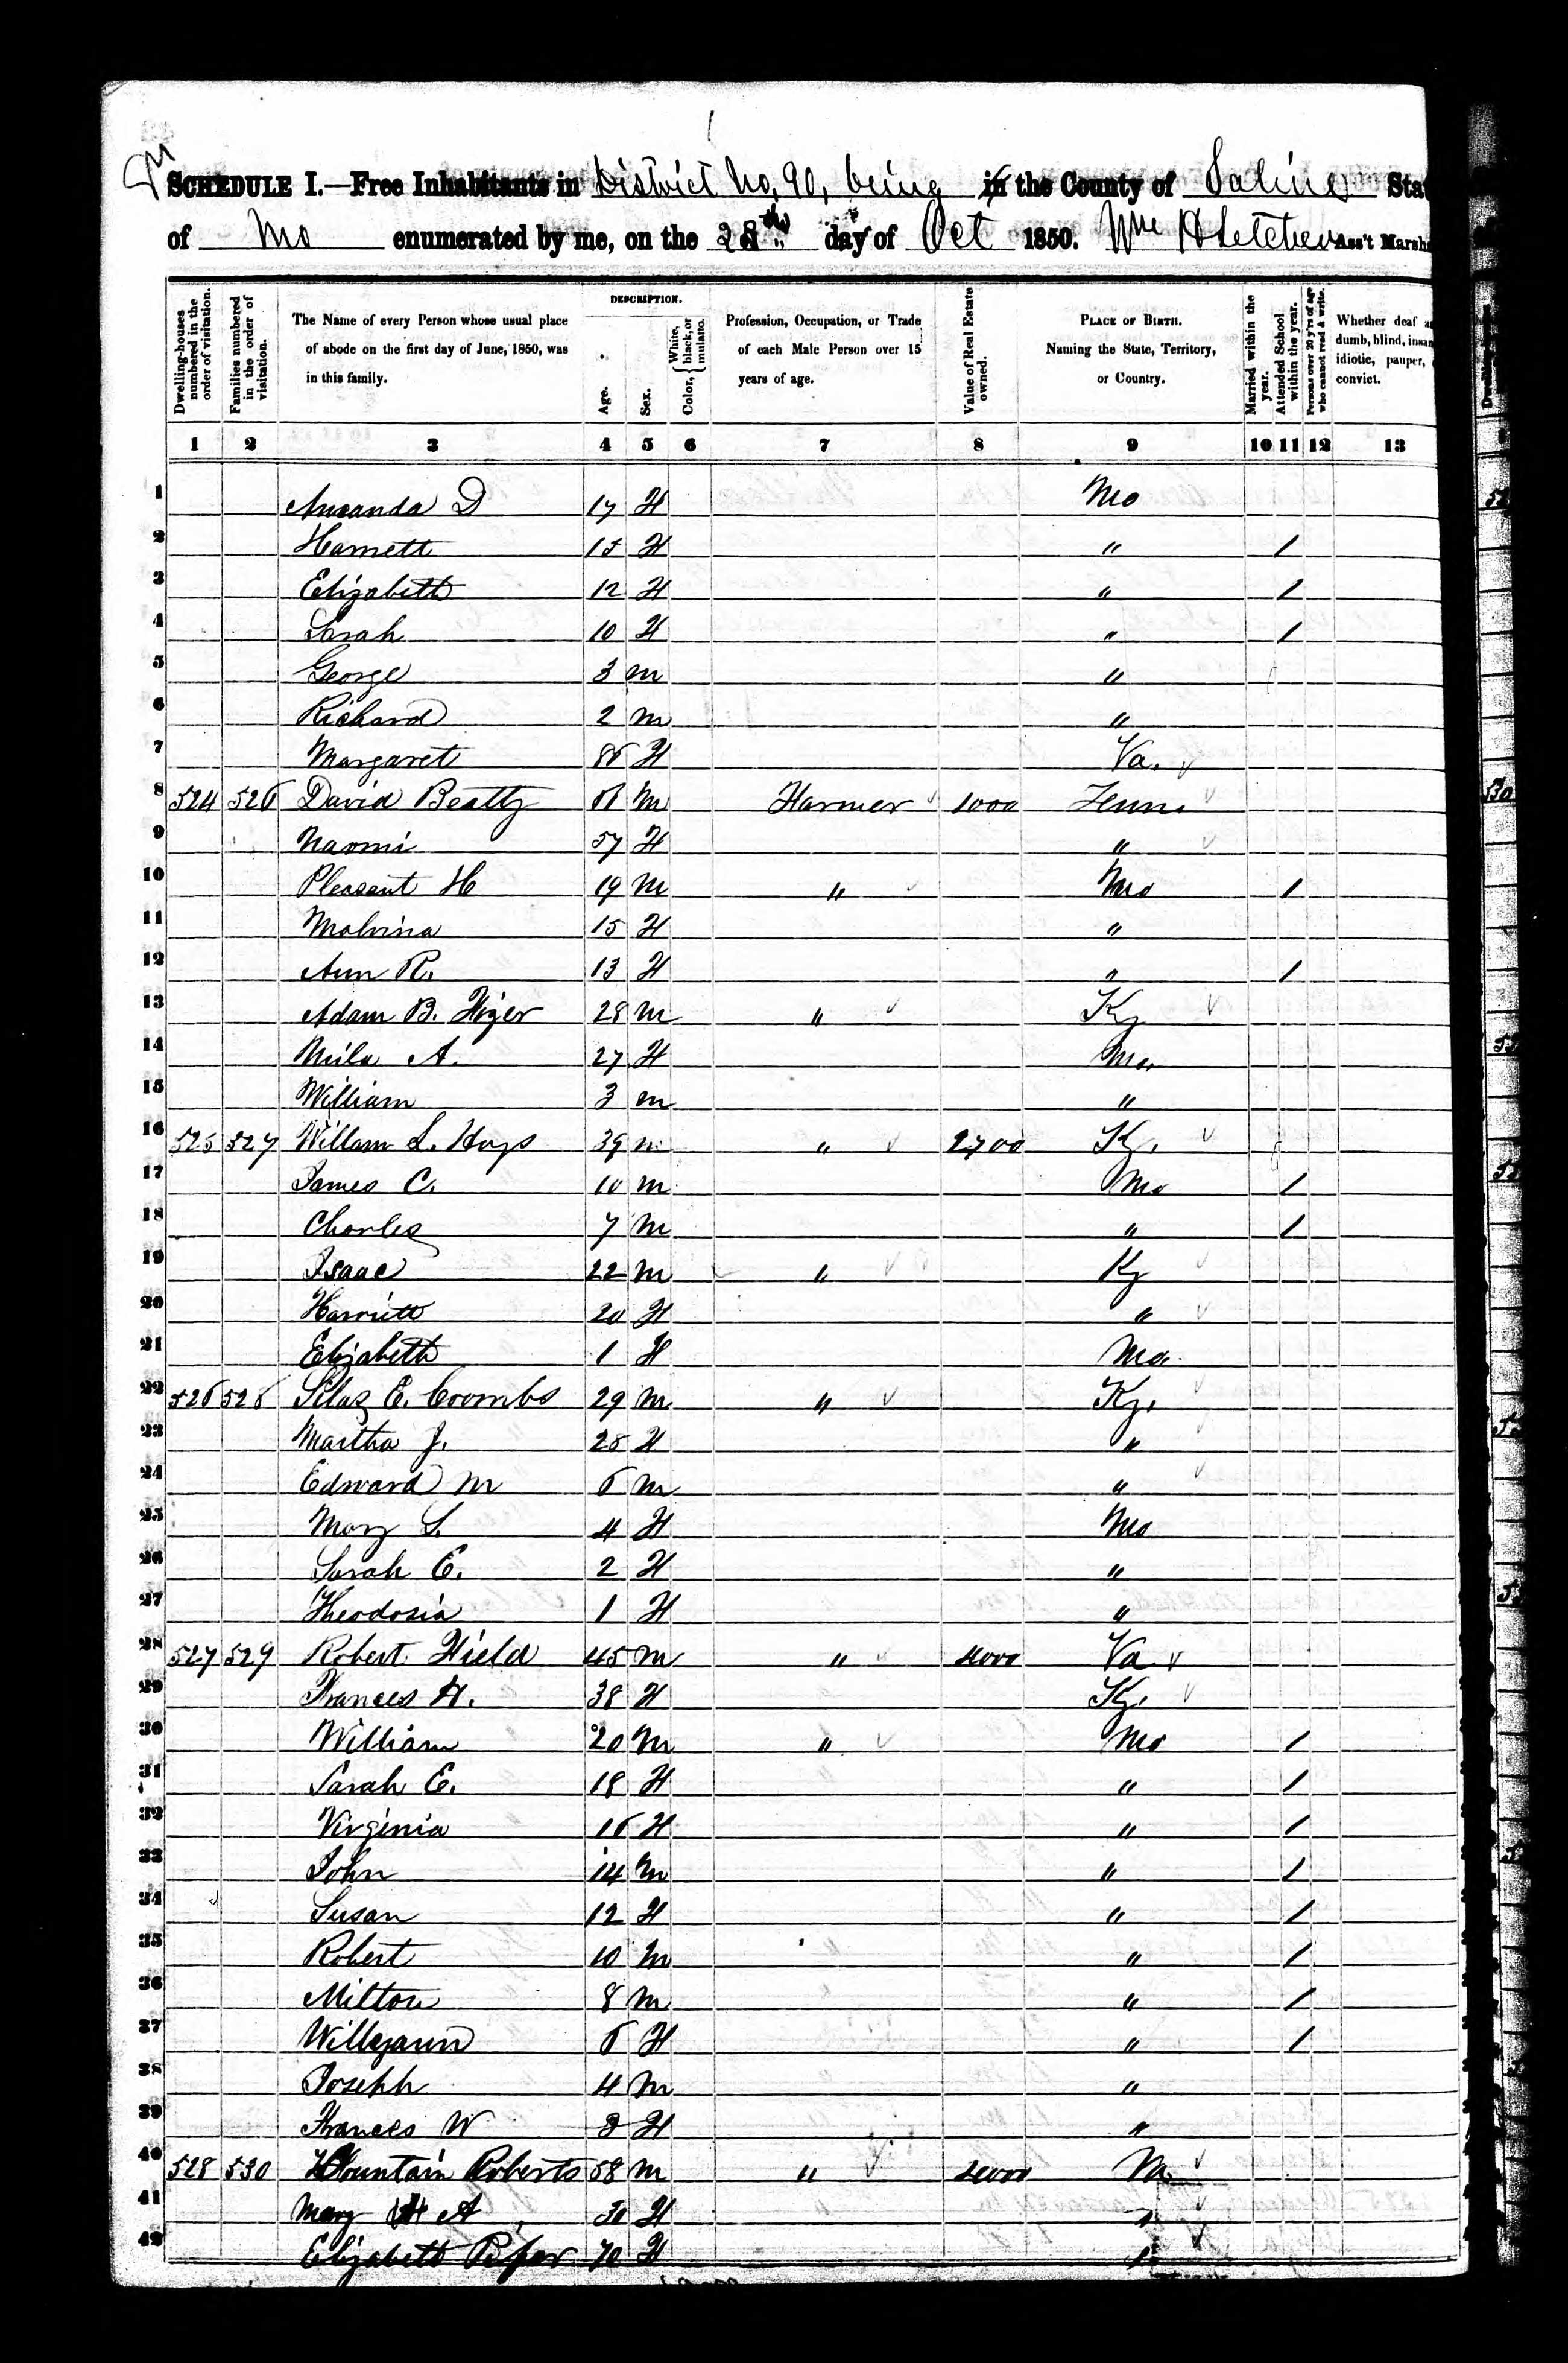 SCHEDULE I.—Free Inhabitants in District No. 90, being in the County of Saline Stat
of Mo enumerated by me, on the 28th day of Oct 1850. Wm H Letcher Ass't Marsh
Dwelling-houses numbered in the order of visitation.
Families numbered in the order of visitation.
The Name of every Person whose usual place of abode on the first day of June, 1850, was in this family.
DESCRIPTION.
Age.
Sex.
Color, White, black, or mulatto.
Profession, Occupation, or Trade of each Male Person over 15 years of age.
Value of Real Estate owned.
PLACE OF BIRTH. Naming the State, Territory, or Country.
Married within the year.
Attended School within the year.
Persons over 20 y'rs of age who cannot read & write.
Whether deaf a dumb, blind, insan idiotic, pauper, convict.
1 2 3 4 5 6 7 8 9 10 11 12 13
1 Amanda D 17 F Mo
2 Harriett 15 F " /
3 Elizabeth 12 F " /
4 Sarah 10 F " /
5 George 3 m "
6 Richard 2 m "
7 Margaret 86 F Va.
8 524 526 David Beatty m Farmer 1000 Tenn
9 Naomi 57 F "
10 Pleasant H 19 m " Mo /
11 Malvina 15 F "
12 Ann R. 13 F " /
13 Adam B. 28 m " Ky
14 A. 27 F Mo.
15 William 3 m "
16 525 527 Willam L. Hays 39 m " 2700 Ky.
17 James C. 10 m Mo /
18 Charles 7 m " /
19 Isaac 22 m " Ky
20 Harriett 20 F "
21 Elizabeth 1 F Mo.
22 526 528 Silas E. Coombs 29 m " Ky.
23 Martha J. 28 F "
24 Edward M 6 m "
25 Mary S. 4 F Mo
26 Sarah E. 2 F "
27 Theodosia 1 F "
28 527 529 Robert Field 45 m " 4000 Va
29 Frances H. 38 F Ky.
30 William 20 m " Mo /
31 Sarah E. 18 F " /
32 Virginia 16 F " /
33 John 14 m " /
34 Susan 12 F " /
35 Robert 10 m " /
36 Milton 8 m " /
37 Willyann 6 F " /
38 Joseph 4 m "
39 Frances W F "
40 528 530 Fountain Roberts 58 m "
41 Mary A F "
42 Elizabeth Piper 70 F "